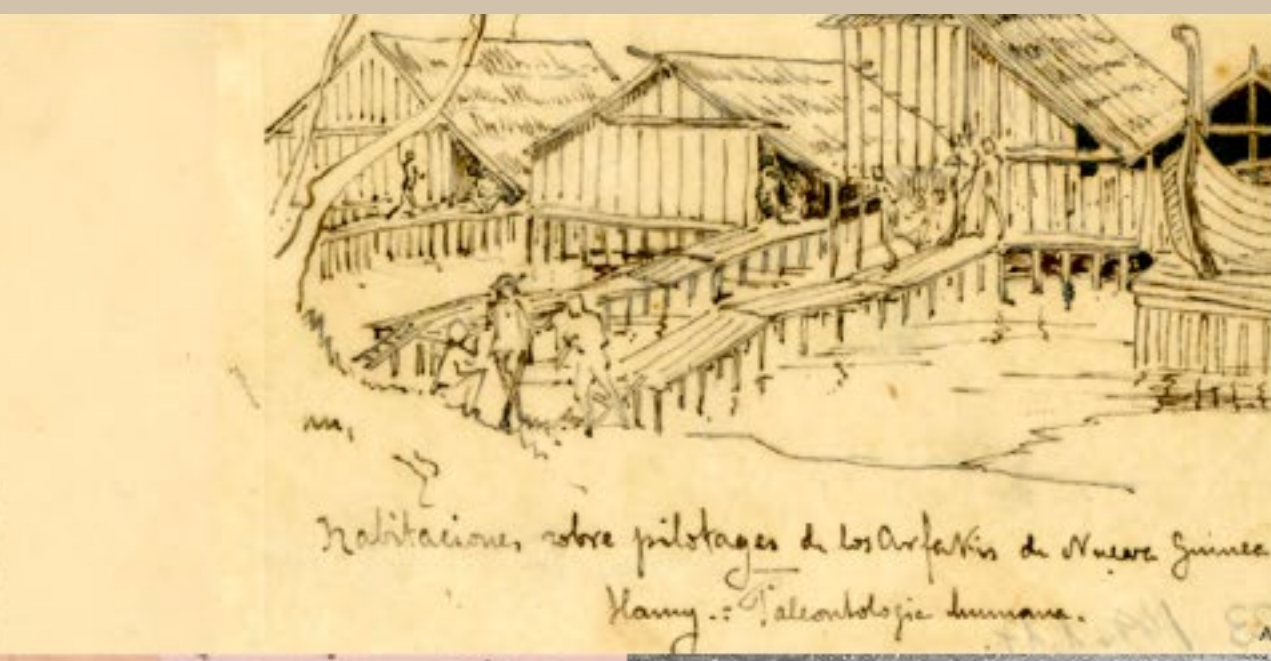 Habitaciones sobre pilotages de los Arfakis de Nueva Guinea
Hamy.: Paleontologie humana.